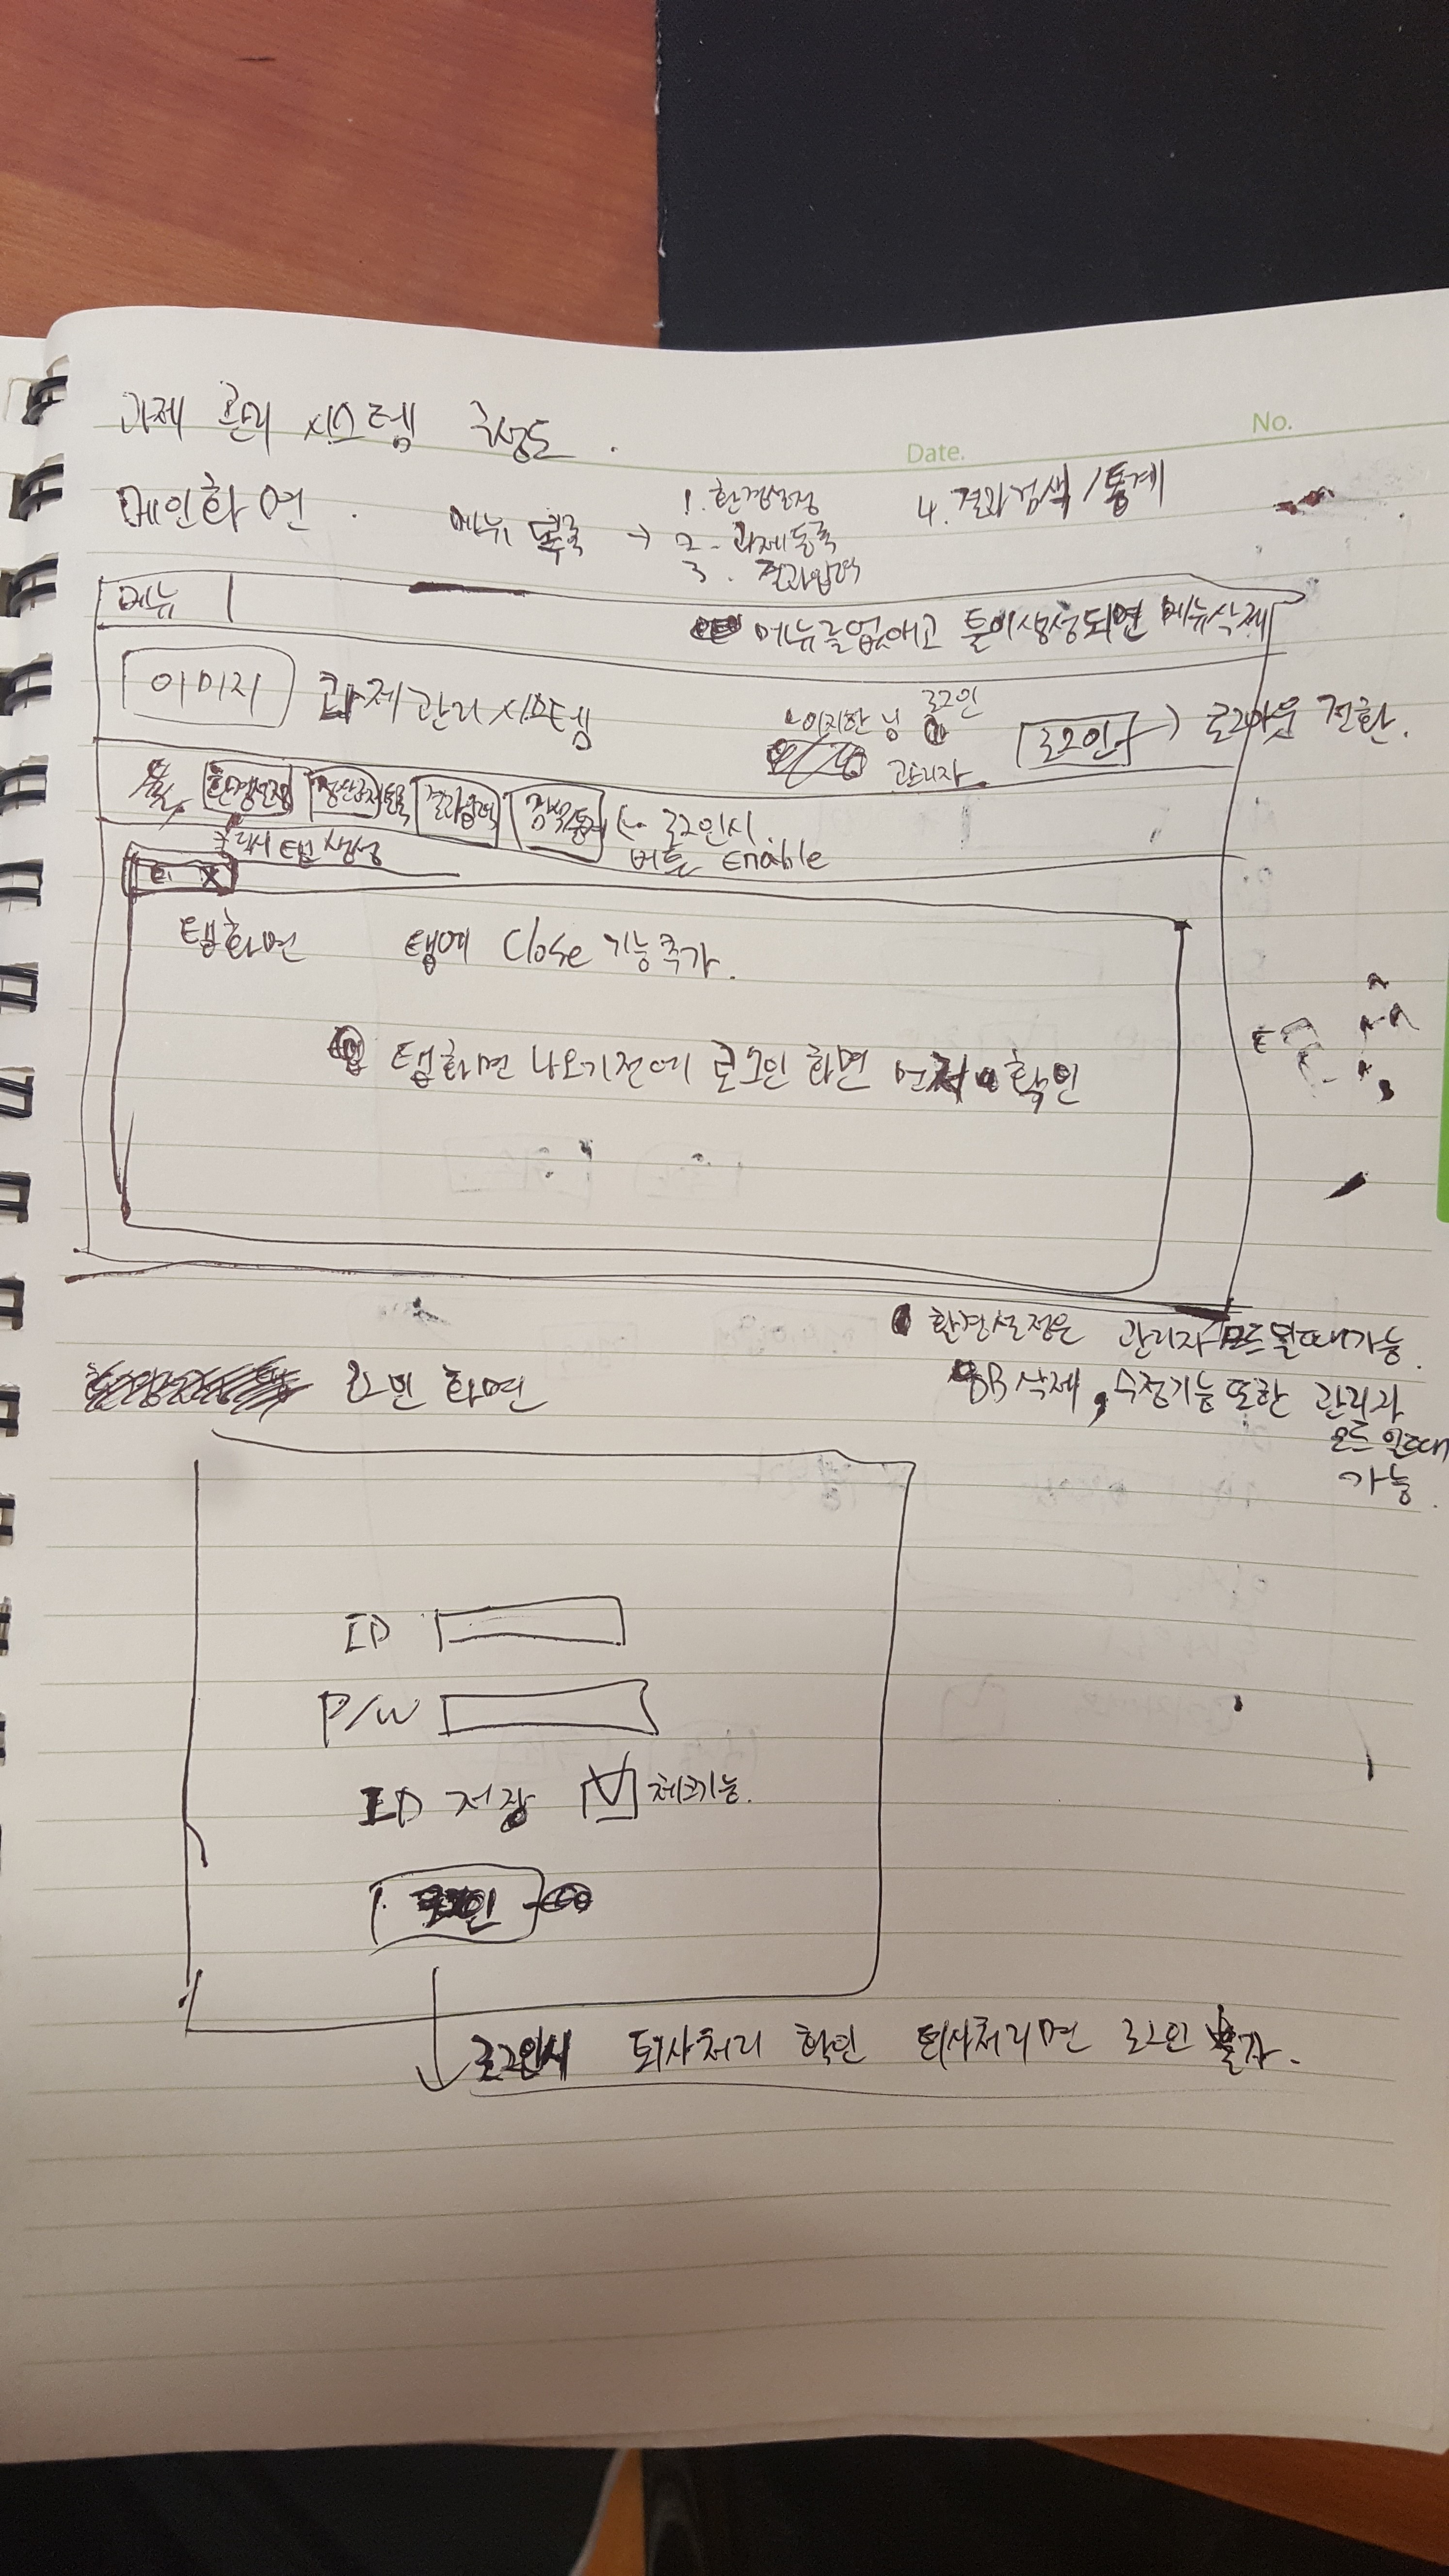 과제 관리 시스템 구성도.
Date.
No.
메인화면.
메뉴 목록 → 1. 환경설정
2. 과제등록
3. 결과입력
4. 결과검색/통계
메뉴
메뉴를없애고 툴이생성되면 메뉴삭제
이미지
과제관리시스템
이지한님 로그인
관리자
로그인 → 로그아웃 전환.
툴
환경설정
결과입력
검색/통계
← 로그인시
버튼 Enable
클릭시 탭 생성
X
탭화면
탭에 Close 기능추가.
탭화면 나오기전에 로그인 화면 먼저 확인
환경설정은 관리자모드일때가능.
DB삭제, 수정기능 또한 관리자
모드일때
가능.
로그인 화면
ID
P/W
ID 저장
체크기능.
로그인
로그인시 퇴사처리 확인 퇴사처리면 로그인 불가.